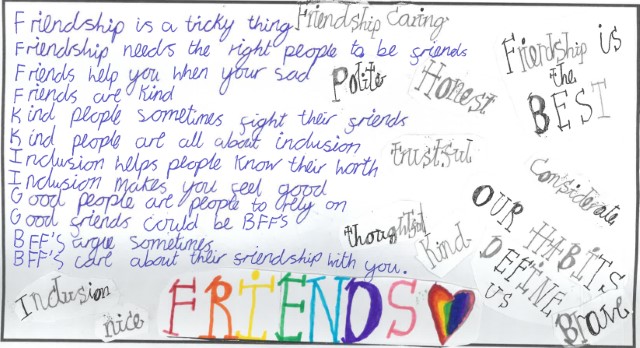 Friendship is a tricky thing
Friendship needs the right people to be friends
Friends help you when your sad
Friends are kind
Kind people sometimes fight their friends
Kind people are all about inclusion
Inclusion helps people know their worth
Inclusion makes you feel good
Good people are people to rely on
Good friends could be BFF's
BFF'S argue sometimes
BFF'S care about their friendship with you.
Friendship Caring
Polite
Honest
Friendship is
the
BEST
trustful
Considerate
thoughtful
Kind
OUR HABITS
DEFINE
US
Brave
Inclusion
nice
FRIENDS